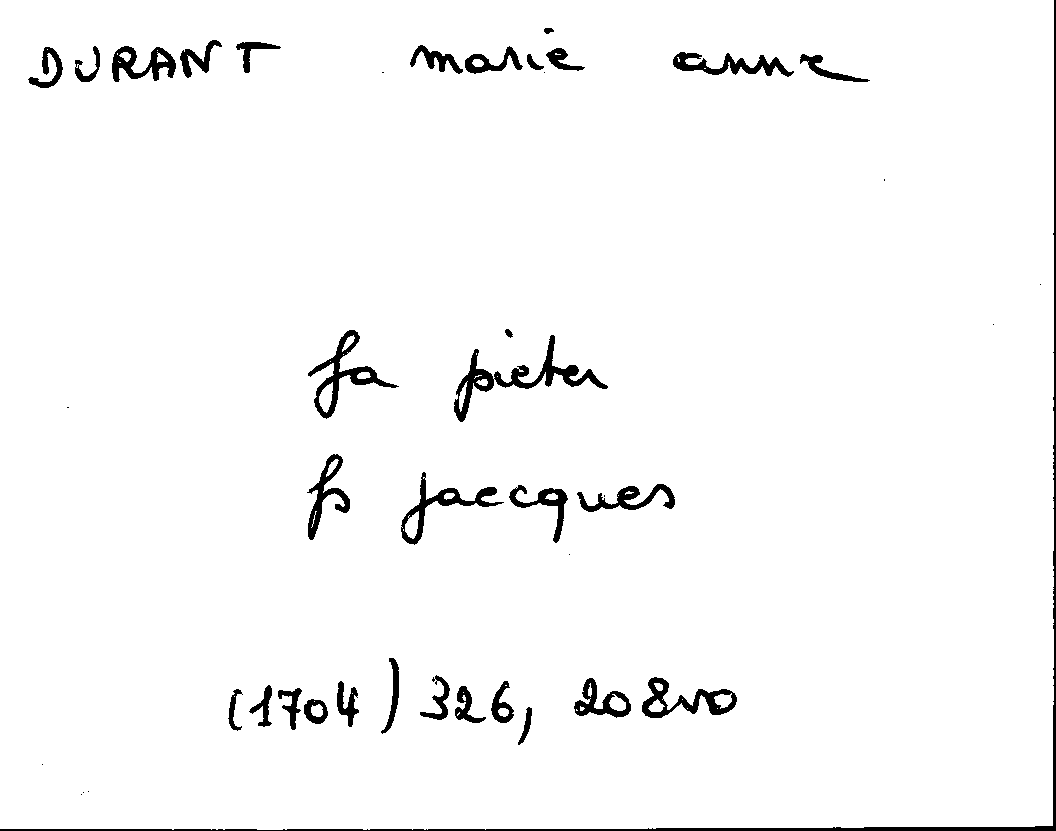 DURANT marie anne
fa pieter
fs jaecques
(1704) 326, 208vo